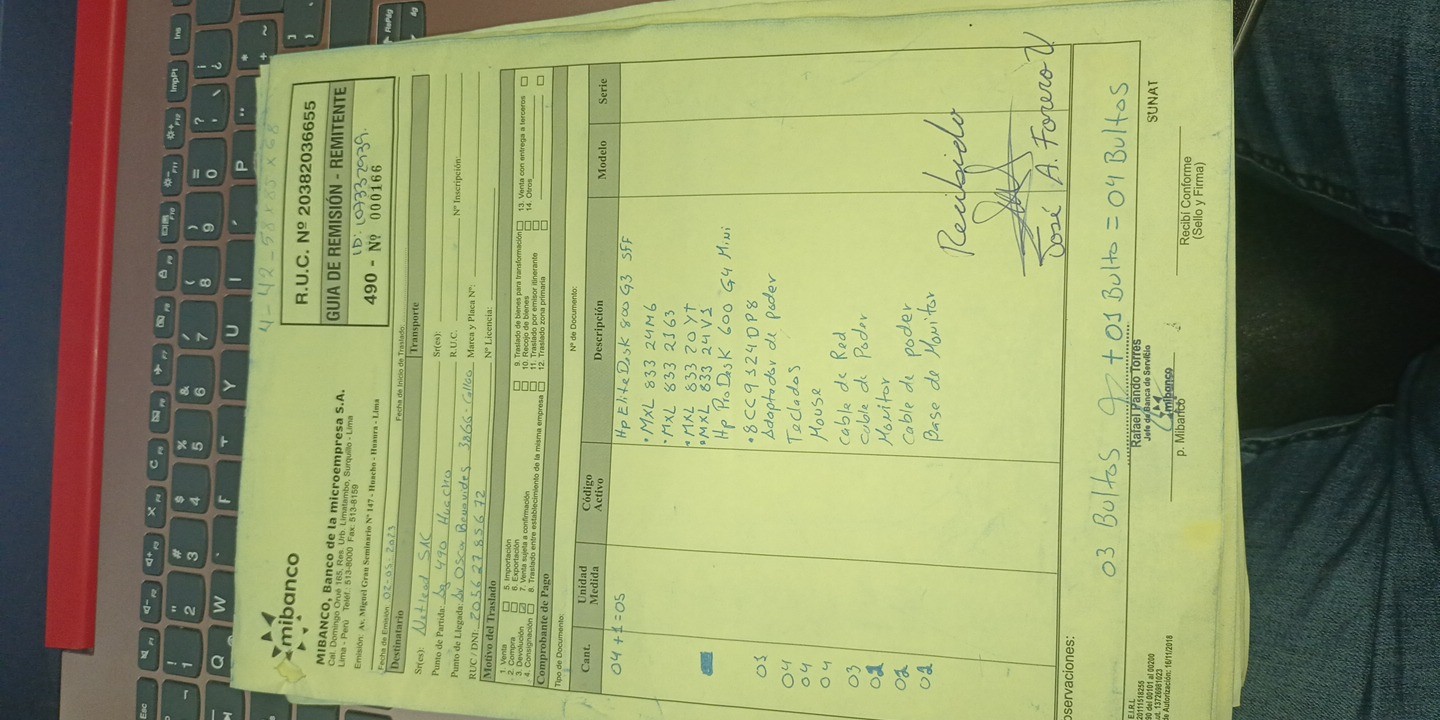 4-42-58x85x68
mibanco
MIBANCO, Banco de la microempresa S.A.
Cal. Domingo Orué 165, Res. Urb. Limatambo, Surquillo - Lima
Lima - Perú Teléf.: 513-8000 Fax: 513-8159
Emisión: Av. Miguel Grau Seminario N° 147 - Huacho - Huaura - Lima
R.U.C. Nº 20382036655
GUIA DE REMISIÓN - REMITENTE
ID: 107332939.
490 - Nº 000166
Fecha de Emisión: 02-05-2023
Fecha de Inicio de Traslado:
Destinatario
Transporte
Sr(es): Netlead SAC
Sr(es):
Punto de Partida: Ag 490 Huacho
R.U.C.
Nº Inscripción:
Punto de Llegada: Av Oscar Benavides 3866-Callao
Marca y Placa Nº:
RUC / DNI: 20562785672
Nº Licencia:
Motivo del Traslado
1. Venta
2. Compra
3. Devolución
4. Consignación
5. Importación
6. Exportación
7. Venta sujeta a confirmación
8. Traslado entre establecimiento de la misma empresa
9. Traslado de bienes para transformación
10. Recojo de bienes
11. Traslado por emisor itinerante
12. Traslado zona primaria
13. Venta con entrega a terceros
14. Otros
Comprobante de Pago
Tipo de Documento:
Nº de Documento:
Cant.
Unidad Medida
Código Activo
Descripción
Modelo
Serie
04+1=05
Hp EliteDesk 800 G3 SFF
• MXL 833 24M6
• MXL 833 2163
• MXL 833 20YT
• MXL 833 24V1
Hp ProDesk 600 G4 Mini
• 8CC9324DP8
Adaptador de poder
04 Teclados
04 Mouse
04 cable de Red
03 cable de Poder
02 Monitor
02 cable de poder
02 Base de Monitor
Recibido
José A. Forero V
Observaciones:
03 Bultos + 01 Bulto = 04 Bultos
Rafael Pando Torres
Jefe de Banca de Servicio
mibanco
p. Mibanco
Recibí Conforme
(Sello y Firma)
SUNAT
E.I.R.L
20111518255
90 del 00101 al 00200
de Autorización: 16/11/2018